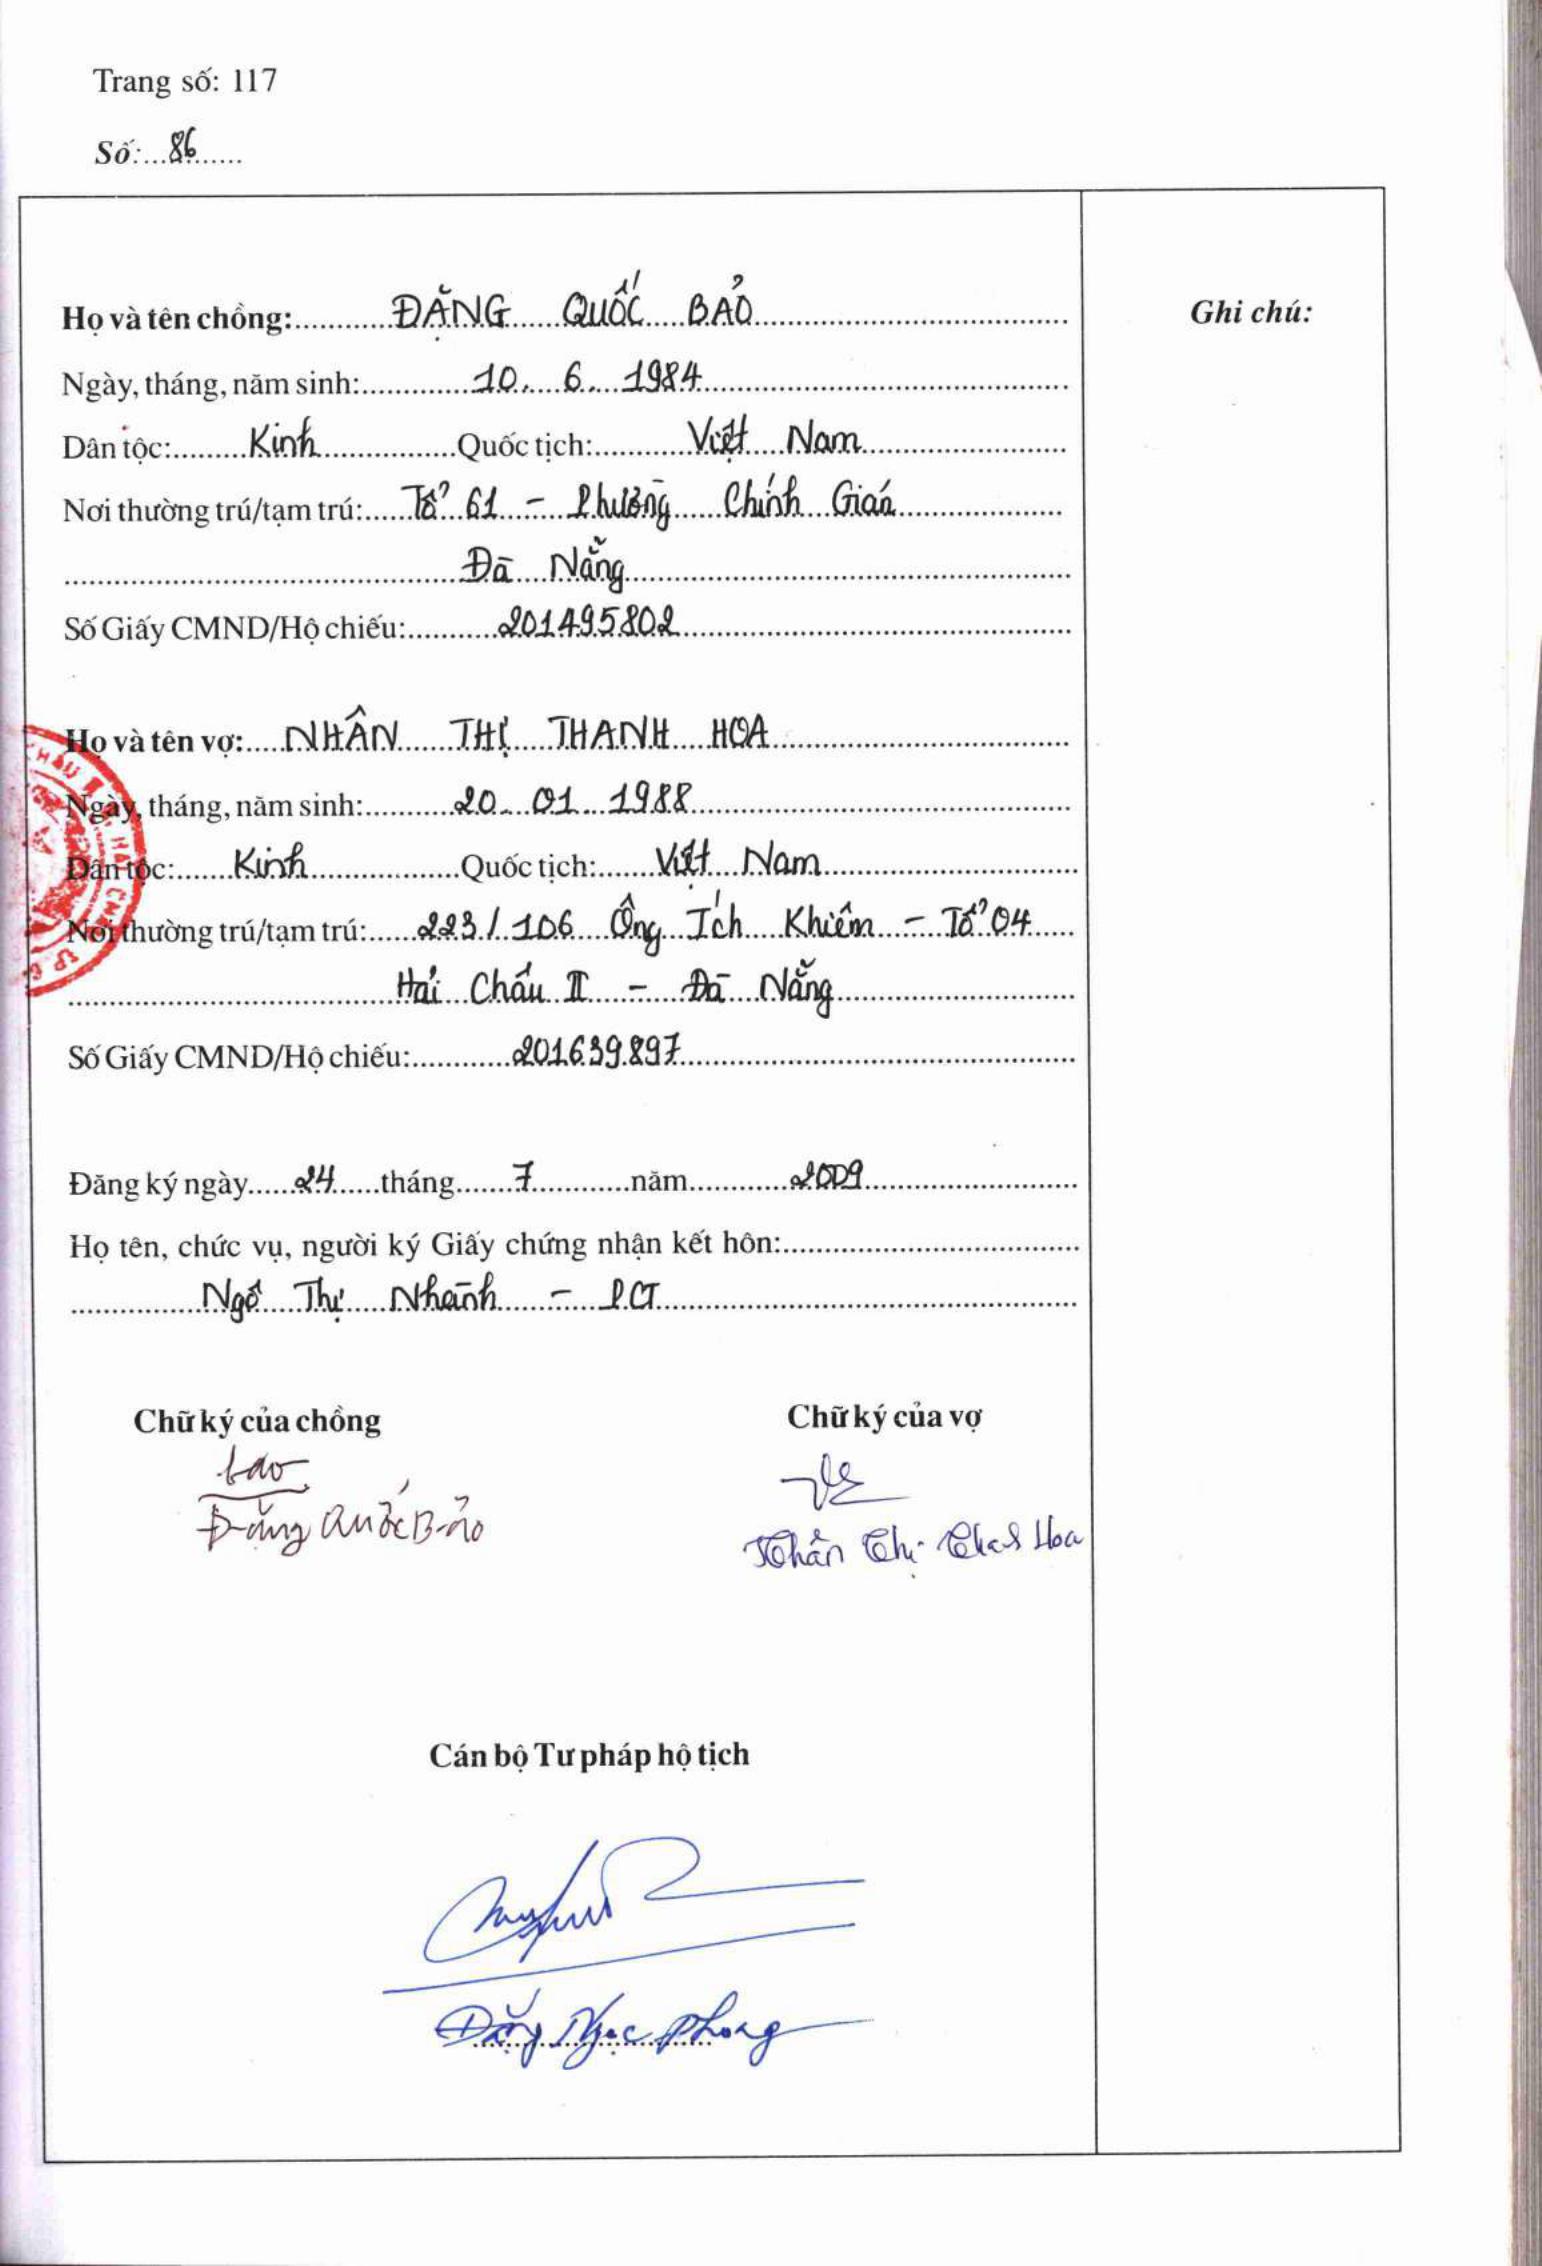 Trang số: 117
Số: 86
Họ và tên chồng: ĐẶNG QUỐC BẢO
Ghi chú:
Ngày, tháng, năm sinh: 10. 6. 1984
Dân tộc: Kinh Quốc tịch: Việt Nam
Nơi thường trú/tạm trú: Tổ 61 - Phường Chính Gián
Đà Nẵng
Số Giấy CMND/Hộ chiếu: 201495802
Họ và tên vợ: NHÂN THỊ THANH HOA
Ngày, tháng, năm sinh: 20. 01. 1988
Dân tộc: Kinh Quốc tịch: Việt Nam
Nơi thường trú/tạm trú: 223/106 Ông Ích Khiêm - Tổ 04
Hải Châu II - Đà Nẵng
Số Giấy CMND/Hộ chiếu: 201639897
Đăng ký ngày 24 tháng 7 năm 2009
Họ tên, chức vụ, người ký Giấy chứng nhận kết hôn:
Ngô Thị Nhành - PCT
Chữ ký của chồng Chữ ký của vợ
Bảo
Đặng Quốc Bảo Nhân Thị Thanh Hoa
Cán bộ Tư pháp hộ tịch
Đặng Ngọc Phong